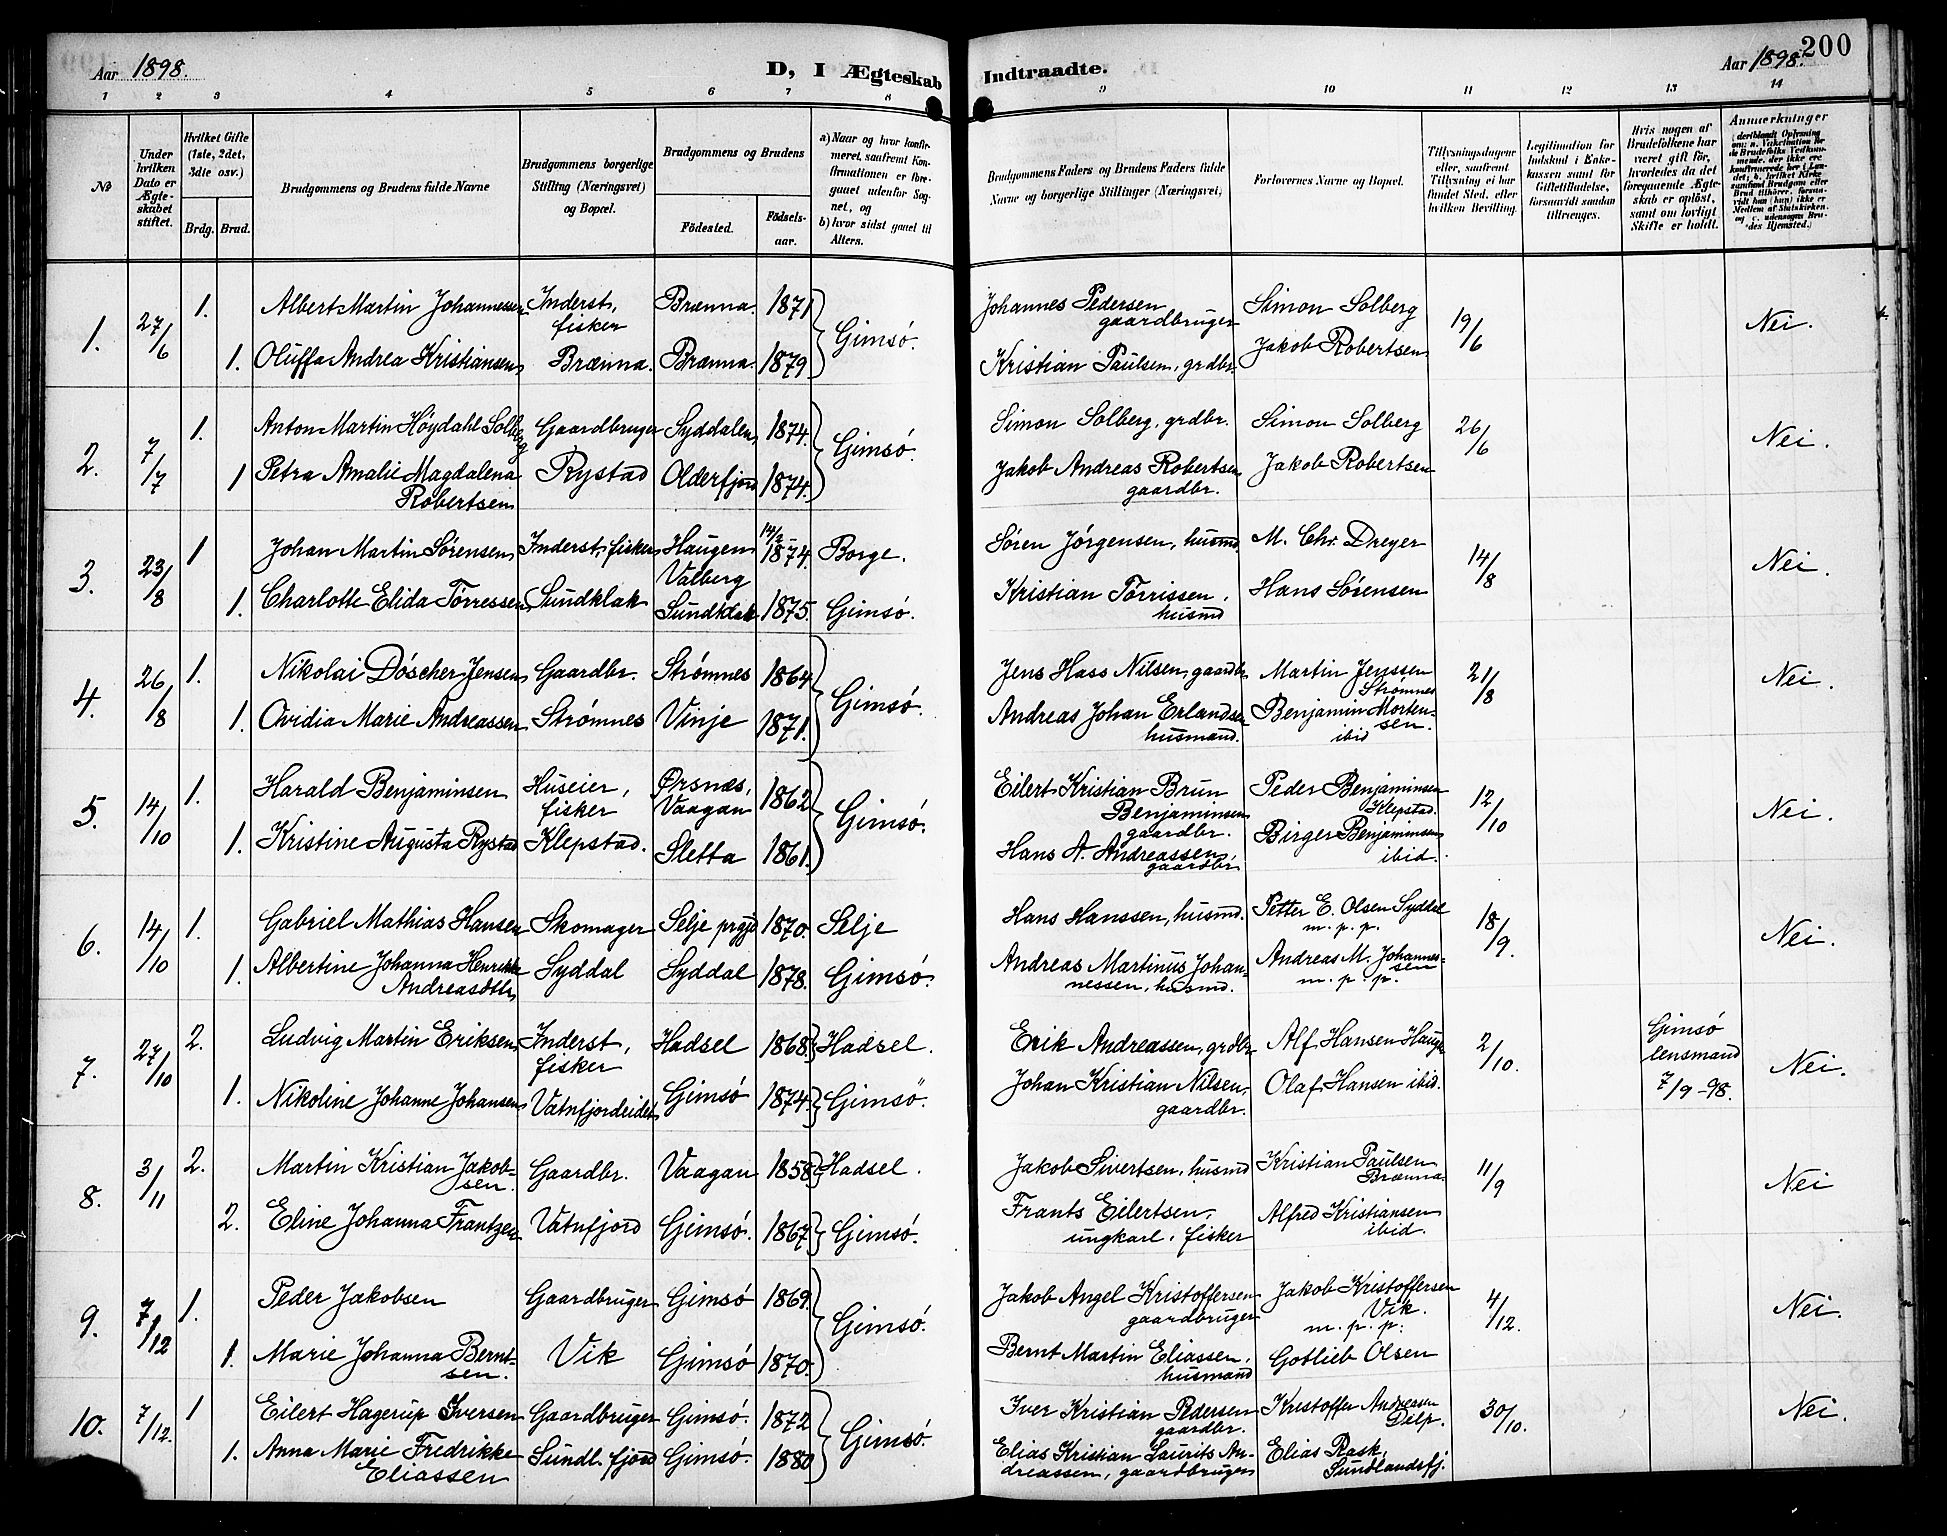 Aar 1898.
D, I Ægteskab Indtraadte.
Aar 1898. 200
1 2 3 4 5 6 7 8 9 10 11 12 13 14
No
Under hvilken Dato er Ægteskabet stiftet.
Hvilket Gifte (1ste, 2det, 3die osv.)
Brdg. Brud.
Brudgommens og Brudens fulde Navne
Brudgommens borgerlige Stilling (Næringsvei) og Bopæl.
Brudgommens og Brudens
Födested. Födselsaar.
a) Naar og hvor konfirmeret, saafremt Konfirmationen er foregaaet udenfor Sognet, og
b) hvor sidst gaaet til Alters.
Brudgommens Faders og Brudens Faders fulde Navne og borgerlige Stillinger (Næringsvei)
Forlovernes Navne og Bopæl.
Tillysningsdagene eller, saafremt Tillysning ei har fundet Sted, efter hvilken Bevilling.
Legitimation for Indskud i Enkekassen samt for Giftetilladelse, forsaavidt saadan tiltrænges.
Hvis nogen af Brudefolkene har været gift för, hvorledes da det foregaaende Ægteskab er oplöst, samt om lovligt Skifte er holdt.
Anmærkninger
1. 27/6 1. Albert Martin Johannessen Inderst, fisker Brenna. 1871 Gimsö. Johannes Pedersen gaardbruger Simon Solberg 19/6 Nei.
1. Oluffa Andrea Kristiansen Brænna. Brænna. 1879 Kristian Paulsen, grdbr. Jakob Robertsen
2. 7/7 1. Anton Martin Høydahl Solberg Gaardbruger Syddalen 1874. Gimsö. Simon Solberg, grdbr. Simon Solberg 26/6 Nei.
1 Petra Amalie Magdalena Robertsen Rystad Olderfjord 1874. Jakob Andreas Robertsen gaardbr. Jakob Robertsen
3. 23/8 1 Johan Martin Sørensen Inderst, fisker Haugen Valberg 1874. Borge. Søren Jørgensen, husmd. M. Chr. Dreyer 14/8 Nei.
1. Charlotte Elida Tørressen Sundklak Sundklak 1875. Gimsö. Kristian Tørrissen, husmd Hans Sørensen
4. 26/8 1. Nikolai Döscher Jensen Gaardbr. Strømnes 1864 Gimsö. Jens Hass Nilsen, gaardbr Martin Jenssen Strømnes 21/8 Nei.
1. Ovidia Marie Andreassen Strømnes Vinje 1871. Andreas Johan Erlandsen husmand. Benjamin Mortensen. ibid
5. 14/10 1. Harald Benjaminsen Huseier, fisker Ørsnæs, Vaagan 1862 Gimsö. Eilert Kristian Brun Benjaminsen gaardbr. Peder Benjaminsen Klepstad. 12/10 Nei.
1. Kristine Augusta Rystad Klepstad. Sletta 1861. Hans A. Andreassen gaardbr Birger Benjaminsen ibid.
6. 14/10 1. Gabriel Mathias Hansen Skomager Selje prgjd 1870. Selje Hans Hanssen, husmd. Petter E. Olsen Syddal m. p. p. 18/9. Nei.
1. Albertine Johanna Henrikke Andreasdtr Syddal Syddal 1878. Gimsö. Andreas Martinus Johannessen, husmd. Andreas M. Johannessen m. p. p.
7. 27/10 2. Ludvig Martin Eriksen Inderst, fisker Hadsel 1868 Hadsel. Erik Andreassen, grdbr Alf Hansen Haugen 2/10. Gimsö lensmand 7/9-98. Nei.
1. Nikoline Johanne Johansen Vatnfjordeidet Gimsö 1874. Gimsö. Johan Kristian Nilsen, gaardbr. Olaf Hansen ibid.
8. 3/11 2. Martin Kristian Jakobsen. Gaardbr. Vaagan 1858 Hadsel. Jakob Sivertsen, husmd Kristian Paulsen Brænna. 11/9 Nei
2. Eline Johanna Frantzen Vatnfjord Gimsö. 1867 Gimsö. Frants Eilertsen, ungkarl, fisker Alfred Kristiansen ibid.
9. 7/12 1. Peder Jakobsen Gaardbruger Gimsö 1869. Gimsö. Jakob Angel Kristoffersen gaardbruger Jakob Kristoffersen Vik. m. p. p. 4/12. Nei.
1. Marie Johanna Berntsen. Vik Gimsö 1870. Bernt Martin Eliassen, husmand Gotlieb Olsen
10. 7/12. 1 Eilert Hagerup Iversen Gaardbruger Gimsö. 1872 Gimsö. Iver Kristian Pedersen gaardbr. Kristoffer Andressen Delp. 30/10. Nei.
1. Anna Marie Fredrikke Eliassen Sundl. fjord Gimsö. 1880 Elias Kristian Laurits Andreassen, gaardbruger Elias Rask, Sundlandsfj.